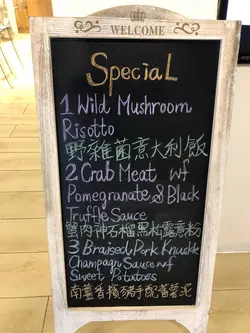 WELCOME
Special
1 Wild Mushroom
Risotto
野雜菌意大利飯
2 Crab Meat wf
Pomegranate & Black
Truffle Sauce
蟹肉神石榴黑松露意粉
3 Braised Pork Knuckle
Champagn Sauce wf
Sweet Potatoes
香檳
豬手配蕃薯泥